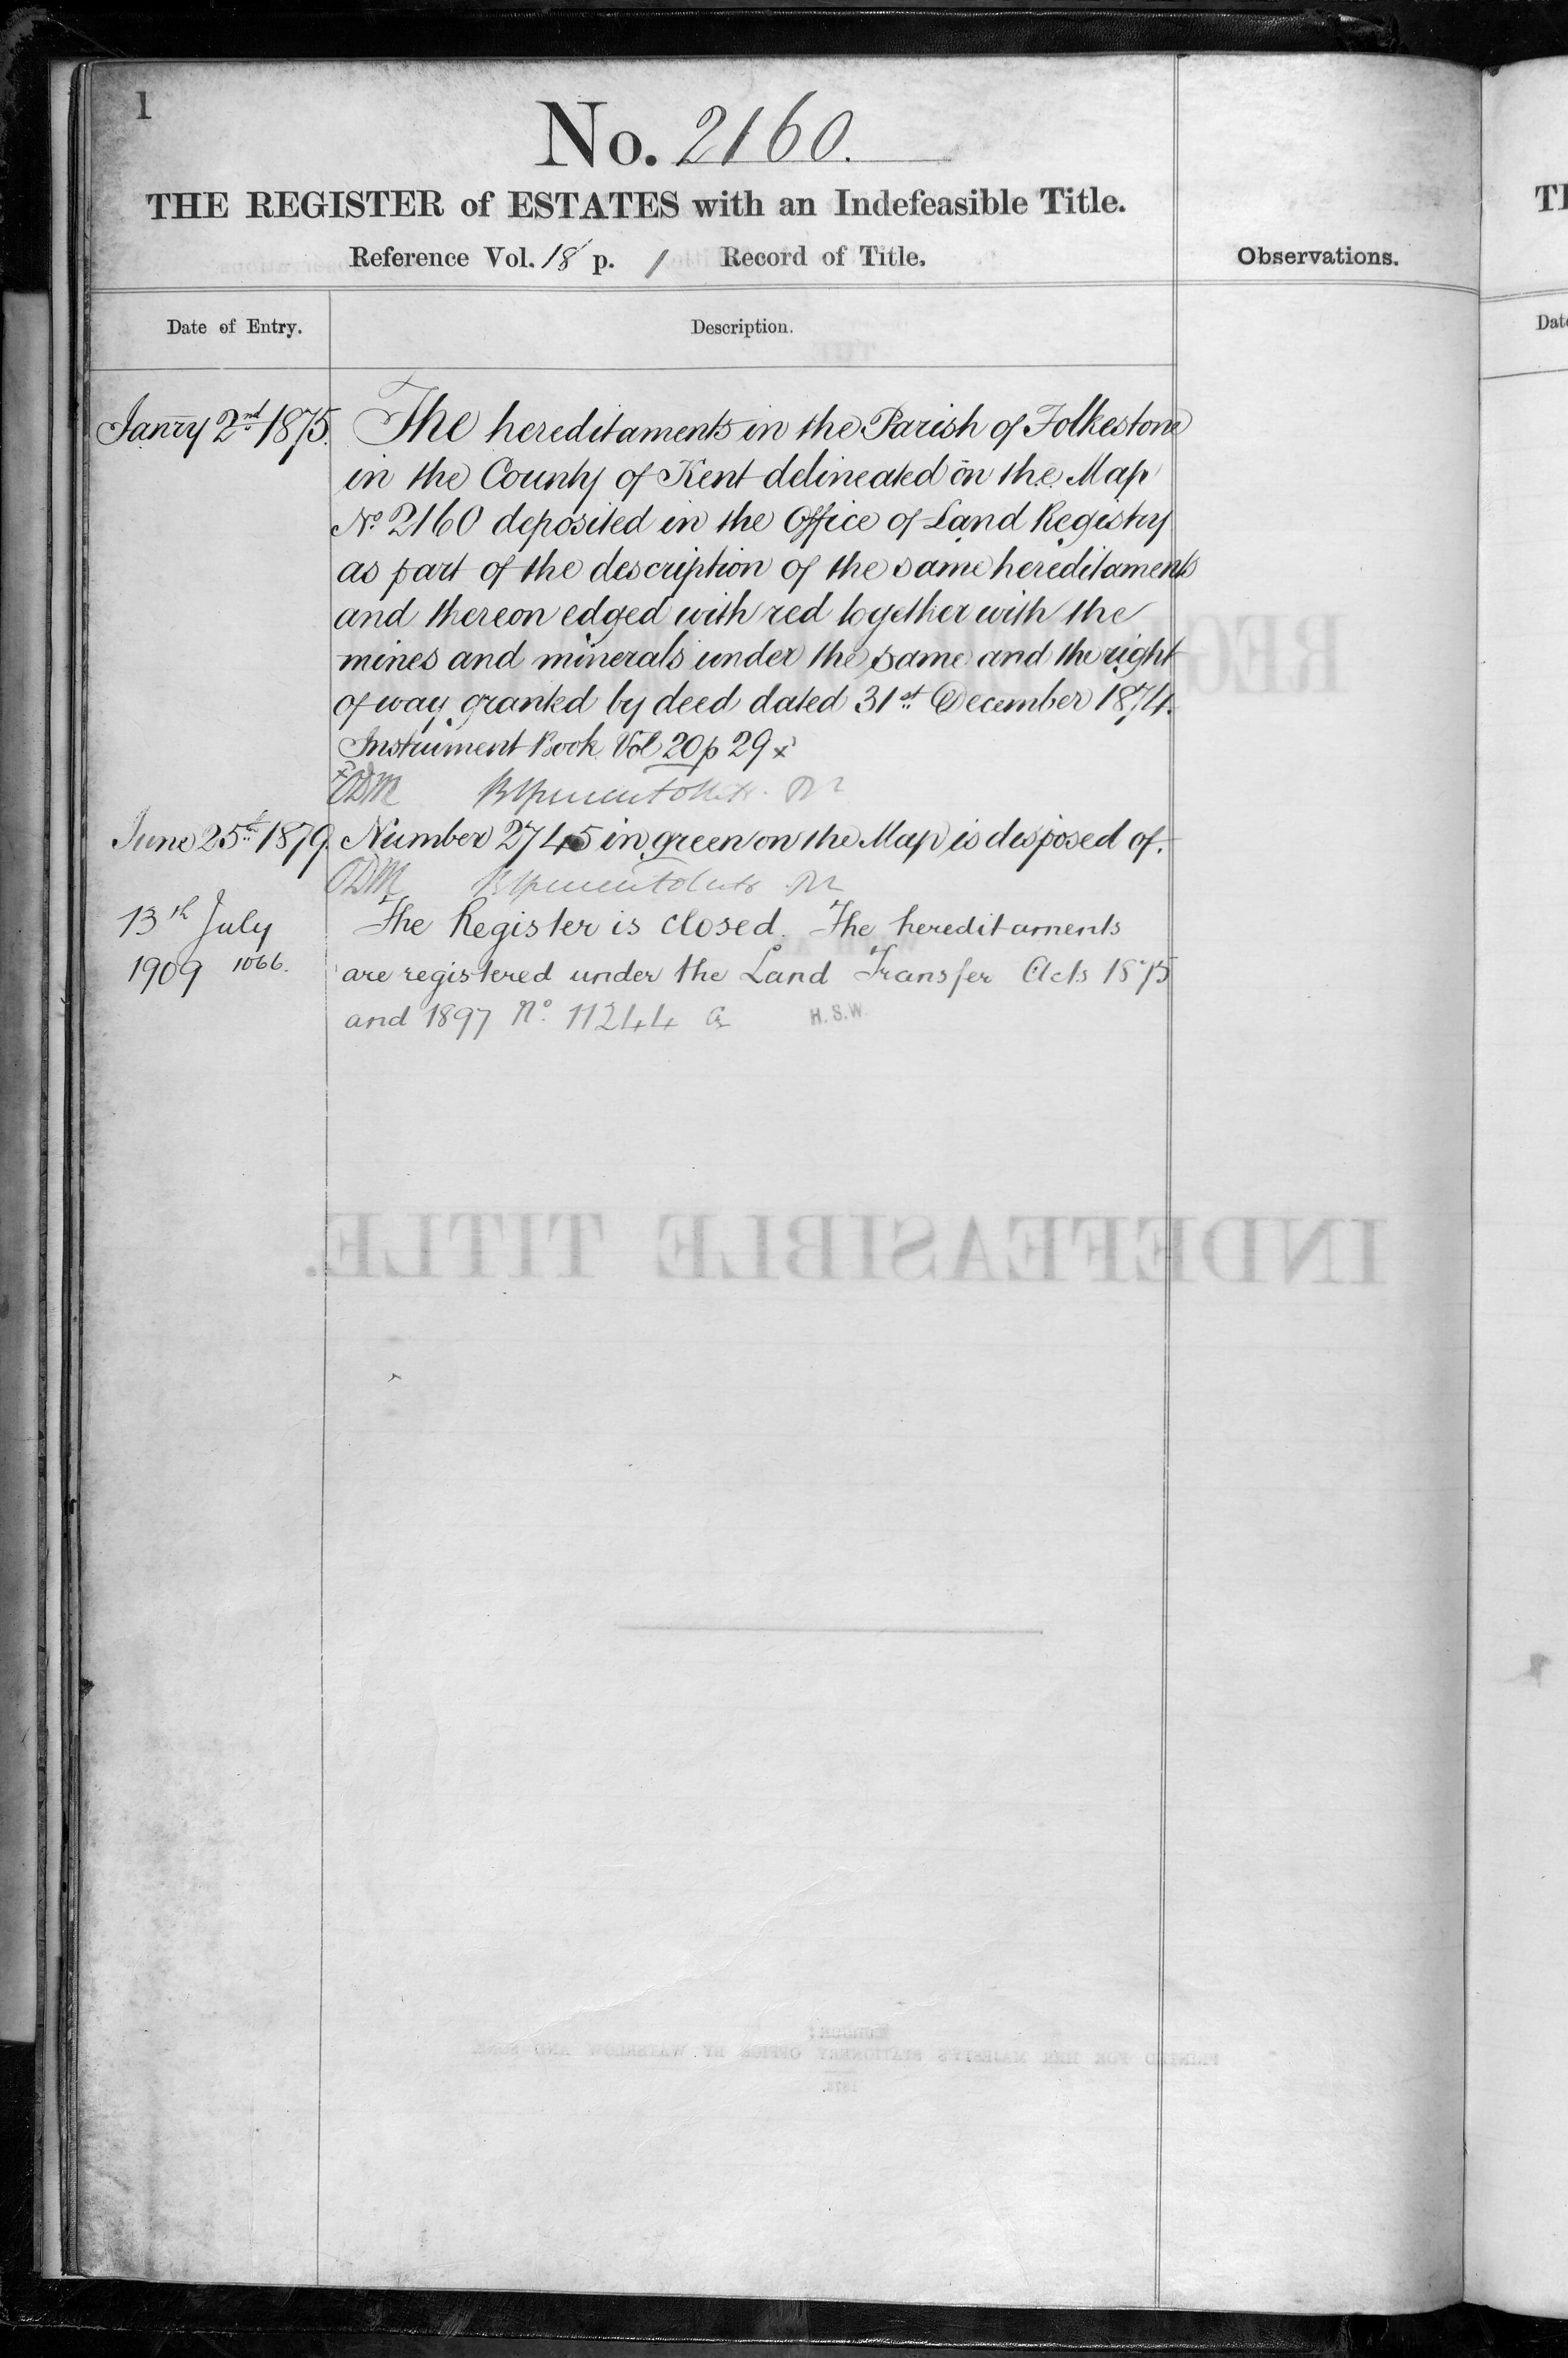 1
No. 2160.
THE REGISTER of ESTATES with an Indefeasible Title.
Reference Vol. 18 p. 1 Record of Title.
Observations.
Date of Entry.
Description.
Janry 2nd 1875.
The hereditaments in the Parish of Folkestone
in the County of Kent delineated on the Map
No 2160 deposited in the Office of Land Registry
as part of the description of the same hereditaments
and thereon edged with red together with the
mines and minerals under the same and the right
of way granted by deed dated 31st December 1874.
Instrument Book Vol 20 p 29 x
June 25th 1879.
Number 2745 in green on the Map is disposed of.
13th July
1909 1066.
The Register is closed. The hereditaments
are registered under the Land Transfer Acts 1875
and 1897 No. 11244
H.S.W.
INDEFEASIBLE TITLE.